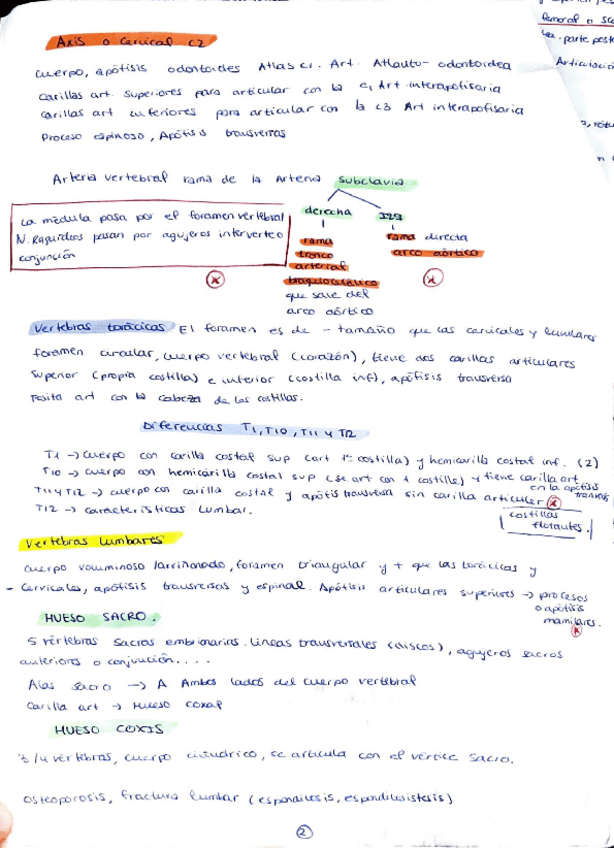 Axis o Cervical C2
cuerpo, apófisis odontoides Atlas C1. Art. Atlauto-odontoidea
carillas art. superiores para articular con la C1 Art interapofisaria
carillas art inferiores para articular con la C3 Art interapofisaria
Proceso espinoso, Apófisis transversas
Arteria vertebral rama de la Arteria subclavia
derecha izq
La médula pasa por el foramen vertebral
N. Raquídeos pasan por agujeros interverteb
conjunción
rama
tronco
arterial
braquiocefálico
que sale del
arco aórtico
rama directa
arco aórtico
Vertebras torácicas El foramen es de - tamaño que las cervicales y lumbares
foramen circular, cuerpo vertebral (corazón), tiene dos carillas articulares
superior (propia costilla) e inferior (costilla inf), apófisis transversa
posita art con la cabeza de las costillas.
Diferencias T1, T10, T11 y T12
T1 → cuerpo con carilla costal sup (art 1ª costilla) y hemicarilla costal inf. (2)
T10 → cuerpo con hemicarilla costal sup (se art con 1 costilla) y tiene carilla art
en la apófisis
transvers
T11 y T12 → cuerpo con carilla costal y apófisis transversa sin carilla articular
T12 → características lumbar.
costillas
flotantes.
Vertebras Lumbares
cuerpo voluminoso /arriñonado, foramen triangular y + que las torácicas y
- cervicales, apófisis transversas y espinal. Apófisis articulares superiores → procesos
o apófisis
mamilares.
HUESO SACRO.
5 vértebras sacras embrionarias. líneas transversales (discos), agujeros sacros
anteriores o conjunción....
Alas sacro → A Ambos lados del cuerpo vertebral
Carilla art → Hueso coxal
HUESO COXIS
3/4 vértebras, cuerpo cilíndrico, se articula con el vértice sacro.
osteoporosis, fractura lumbar (espondilosis, espondilolistesis)
2
femoral o
parte post
Articulació